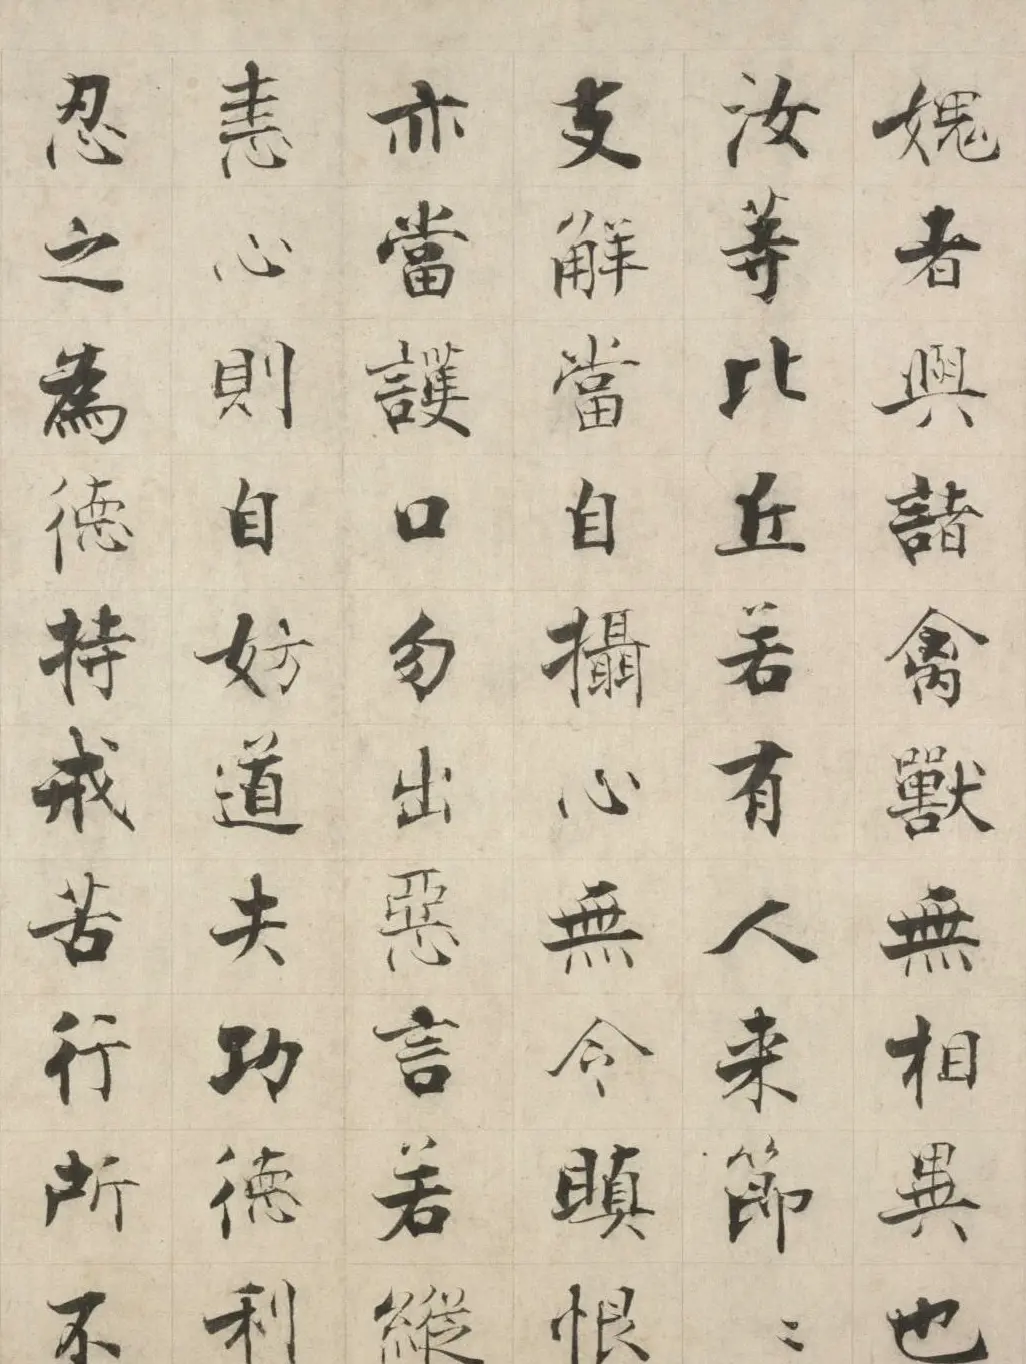 媿者與諸禽獸無相異也
汝等比丘若有人来節〻
支解當自攝心無令瞋恨
亦當護口勿出惡言若縱
恚心則自妨道失功德利
忍之為德持戒苦行所不